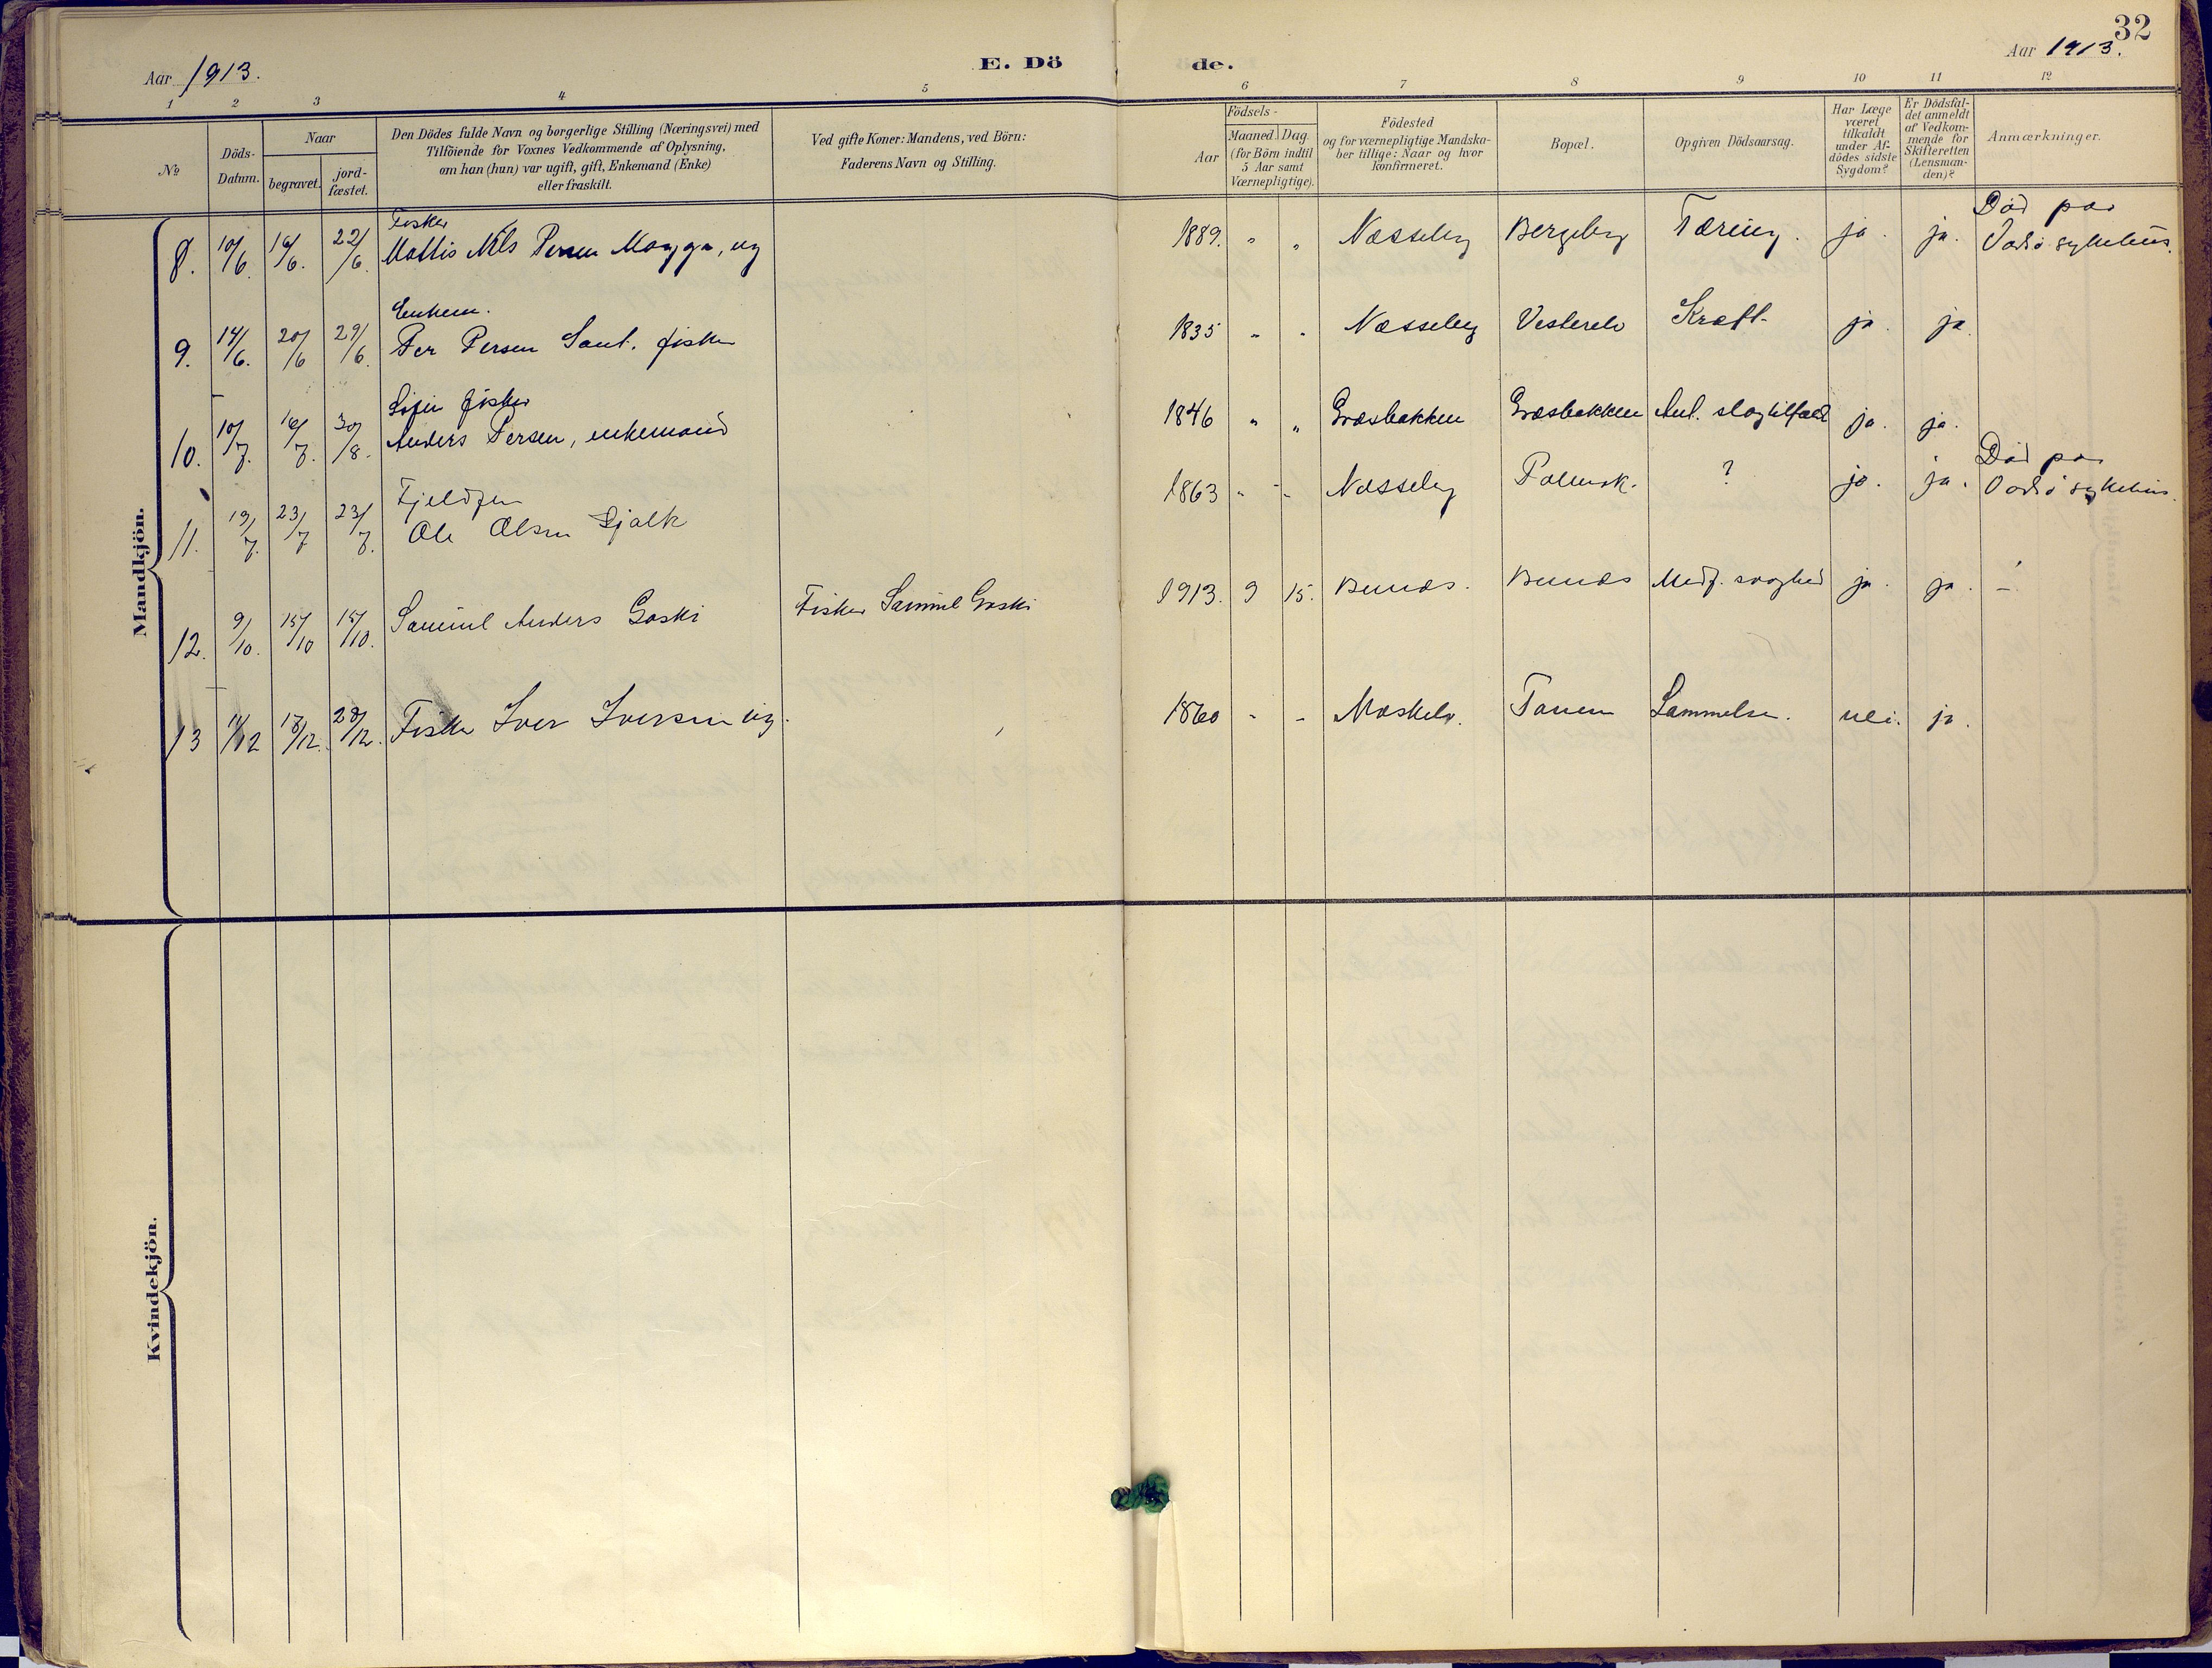 32
Aar 1913. E. Dö de. Aar 1913.
1 2 3 4 5 6 7 8 9 10 11 12
No
Döds-
Datum.
Naar
begravet.
jord-
fæstet.
Den Dödes fulde Navn og borgerlige Stilling (Næringsvei) med
Tilföiende for Voxnes Vedkommende af Oplysning,
om han (hun) var ugift, gift, Enkemand (Enke)
eller fraskilt.
Ved gifte Koner: Mandens, ved Börn:
Faderens Navn og Stilling.
Födsels-
Aar
Maaned. Dag.
(for Börn indtil
5 Aar samt
Værnepligtige).
Födested
og for værnepligtige Mandska-
ber tillige: Naar og hvor
konfirmeret.
Bopæl.
Opgiven Dödsaarsag.
Har Læge
været
tilkaldt
under Af-
dödes sidste
Sygdom?
Er Dödsfal-
det anmeldt
af Vedkom-
mende for
Skifteretten
(Lensman-
den)?
Anmærkninger.
Mandkjön.
Fisker Död paa
8. 10/6. 16/6. 22/6. Mattis Nils Persen Magga, ug 1889. " " Næsseby Bergeby Tæring. ja. ja. Vadsö sykehus.
Enkem.
9. 14/6. 20/6 29/6. Per Persen Saul. fisker 1835 " " Næsseby Vesterelv Kræft ja. ja.
fisker
10. 10/7. 16/7. 30/8. Anders Persen, enkemand 1846 " " Græsbakken Græsbakken Ant. slagtilfæld ja. ja.
Fjeldfin Död paa
11. 19/7. 23/7 23/7. Ole Olsen 1863 " " Næsseby Polmak. ? ja. ja. Vadsö sykehus.
12. 9/10. 15/10 15/10. Samuel Anders Gaski Fisker Samuel Gaski 1913. 9 15. Bunæs. Bunæs Medf. svaghed ja. ja. –
13 11/12 18/12. 28/12. Fisker Iver Iversen ug. 1860 - - Mæskelv. Tanen nei. ja.
Kvindekjön.